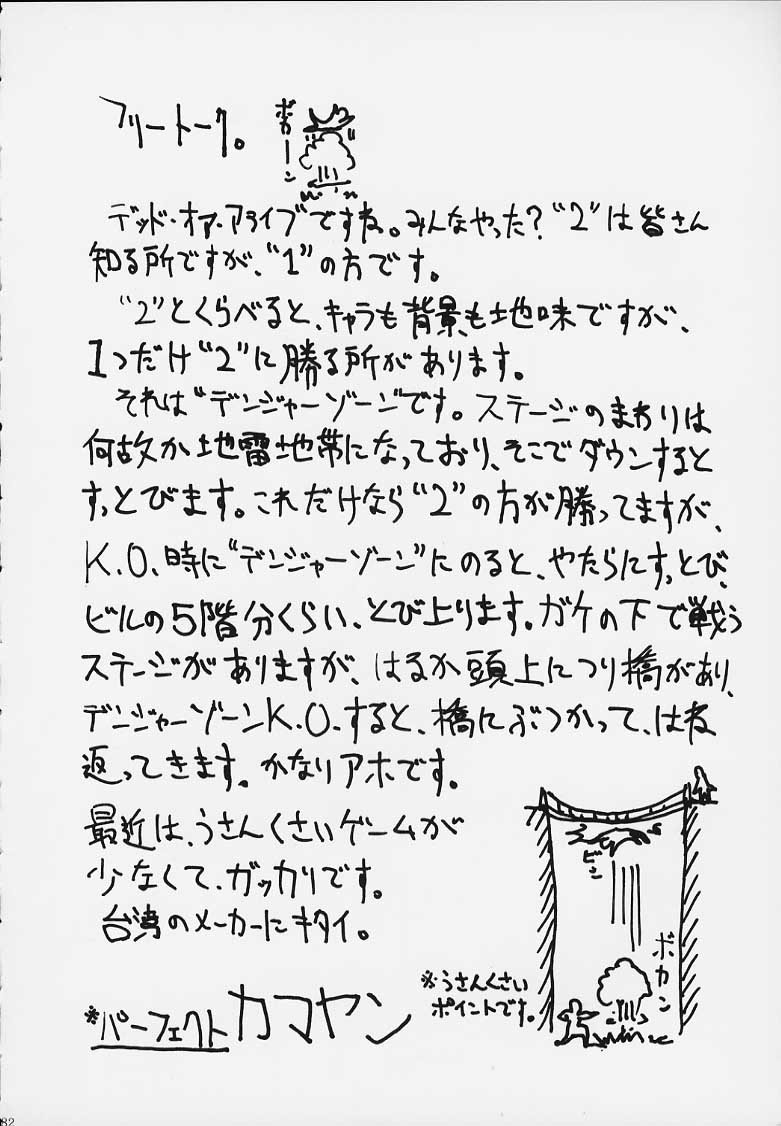 フリートーク。
ボカーン
デッド・オア・アライブですね。みんなやった？“2”は皆さん
知る所ですが、“1”の方です。
“2”とくらべると、キャラも背景も地味ですが、
1つだけ“2”に勝る所があります。
それは“デンジャーゾーン”です。ステージのまわりは
何故か地雷地帯になっており、そこでダウンすると
すっとびます。これだけなら“2”の方が勝ってますが、
K.O.時に“デンジャーゾーン”にのると、やたらにすっとび、
ビルの5階分くらい、とび上ります。ガケの下で戦う
ステージがありますが、はるか頭上につり橋があり、
デンジャーゾーンK.O.すると、橋にぶつかって、はね
返ってきます。かなりアホです。
最近は、うさんくさいゲームが
少なくて、ガッカリです。
台湾のメーカーにキタイ。
※パーフェクトカマヤン
ビシ
ボカン
※うさんくさい
ポイントです。
82